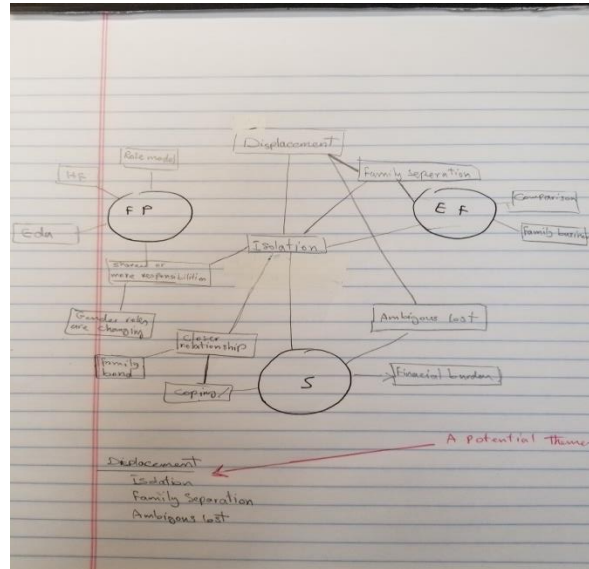 Displacement
Role model
Family seperation
FP
EF
Comparison
Eda
Isolation
Shared or
more responsibilities
Gender roles
are changing
Closer
relationship
Ambigous lost
Family
bond
Coping
S
Finacial burden
A potential theme
Displacement
Isolation
Family Seperation
Ambigous lost